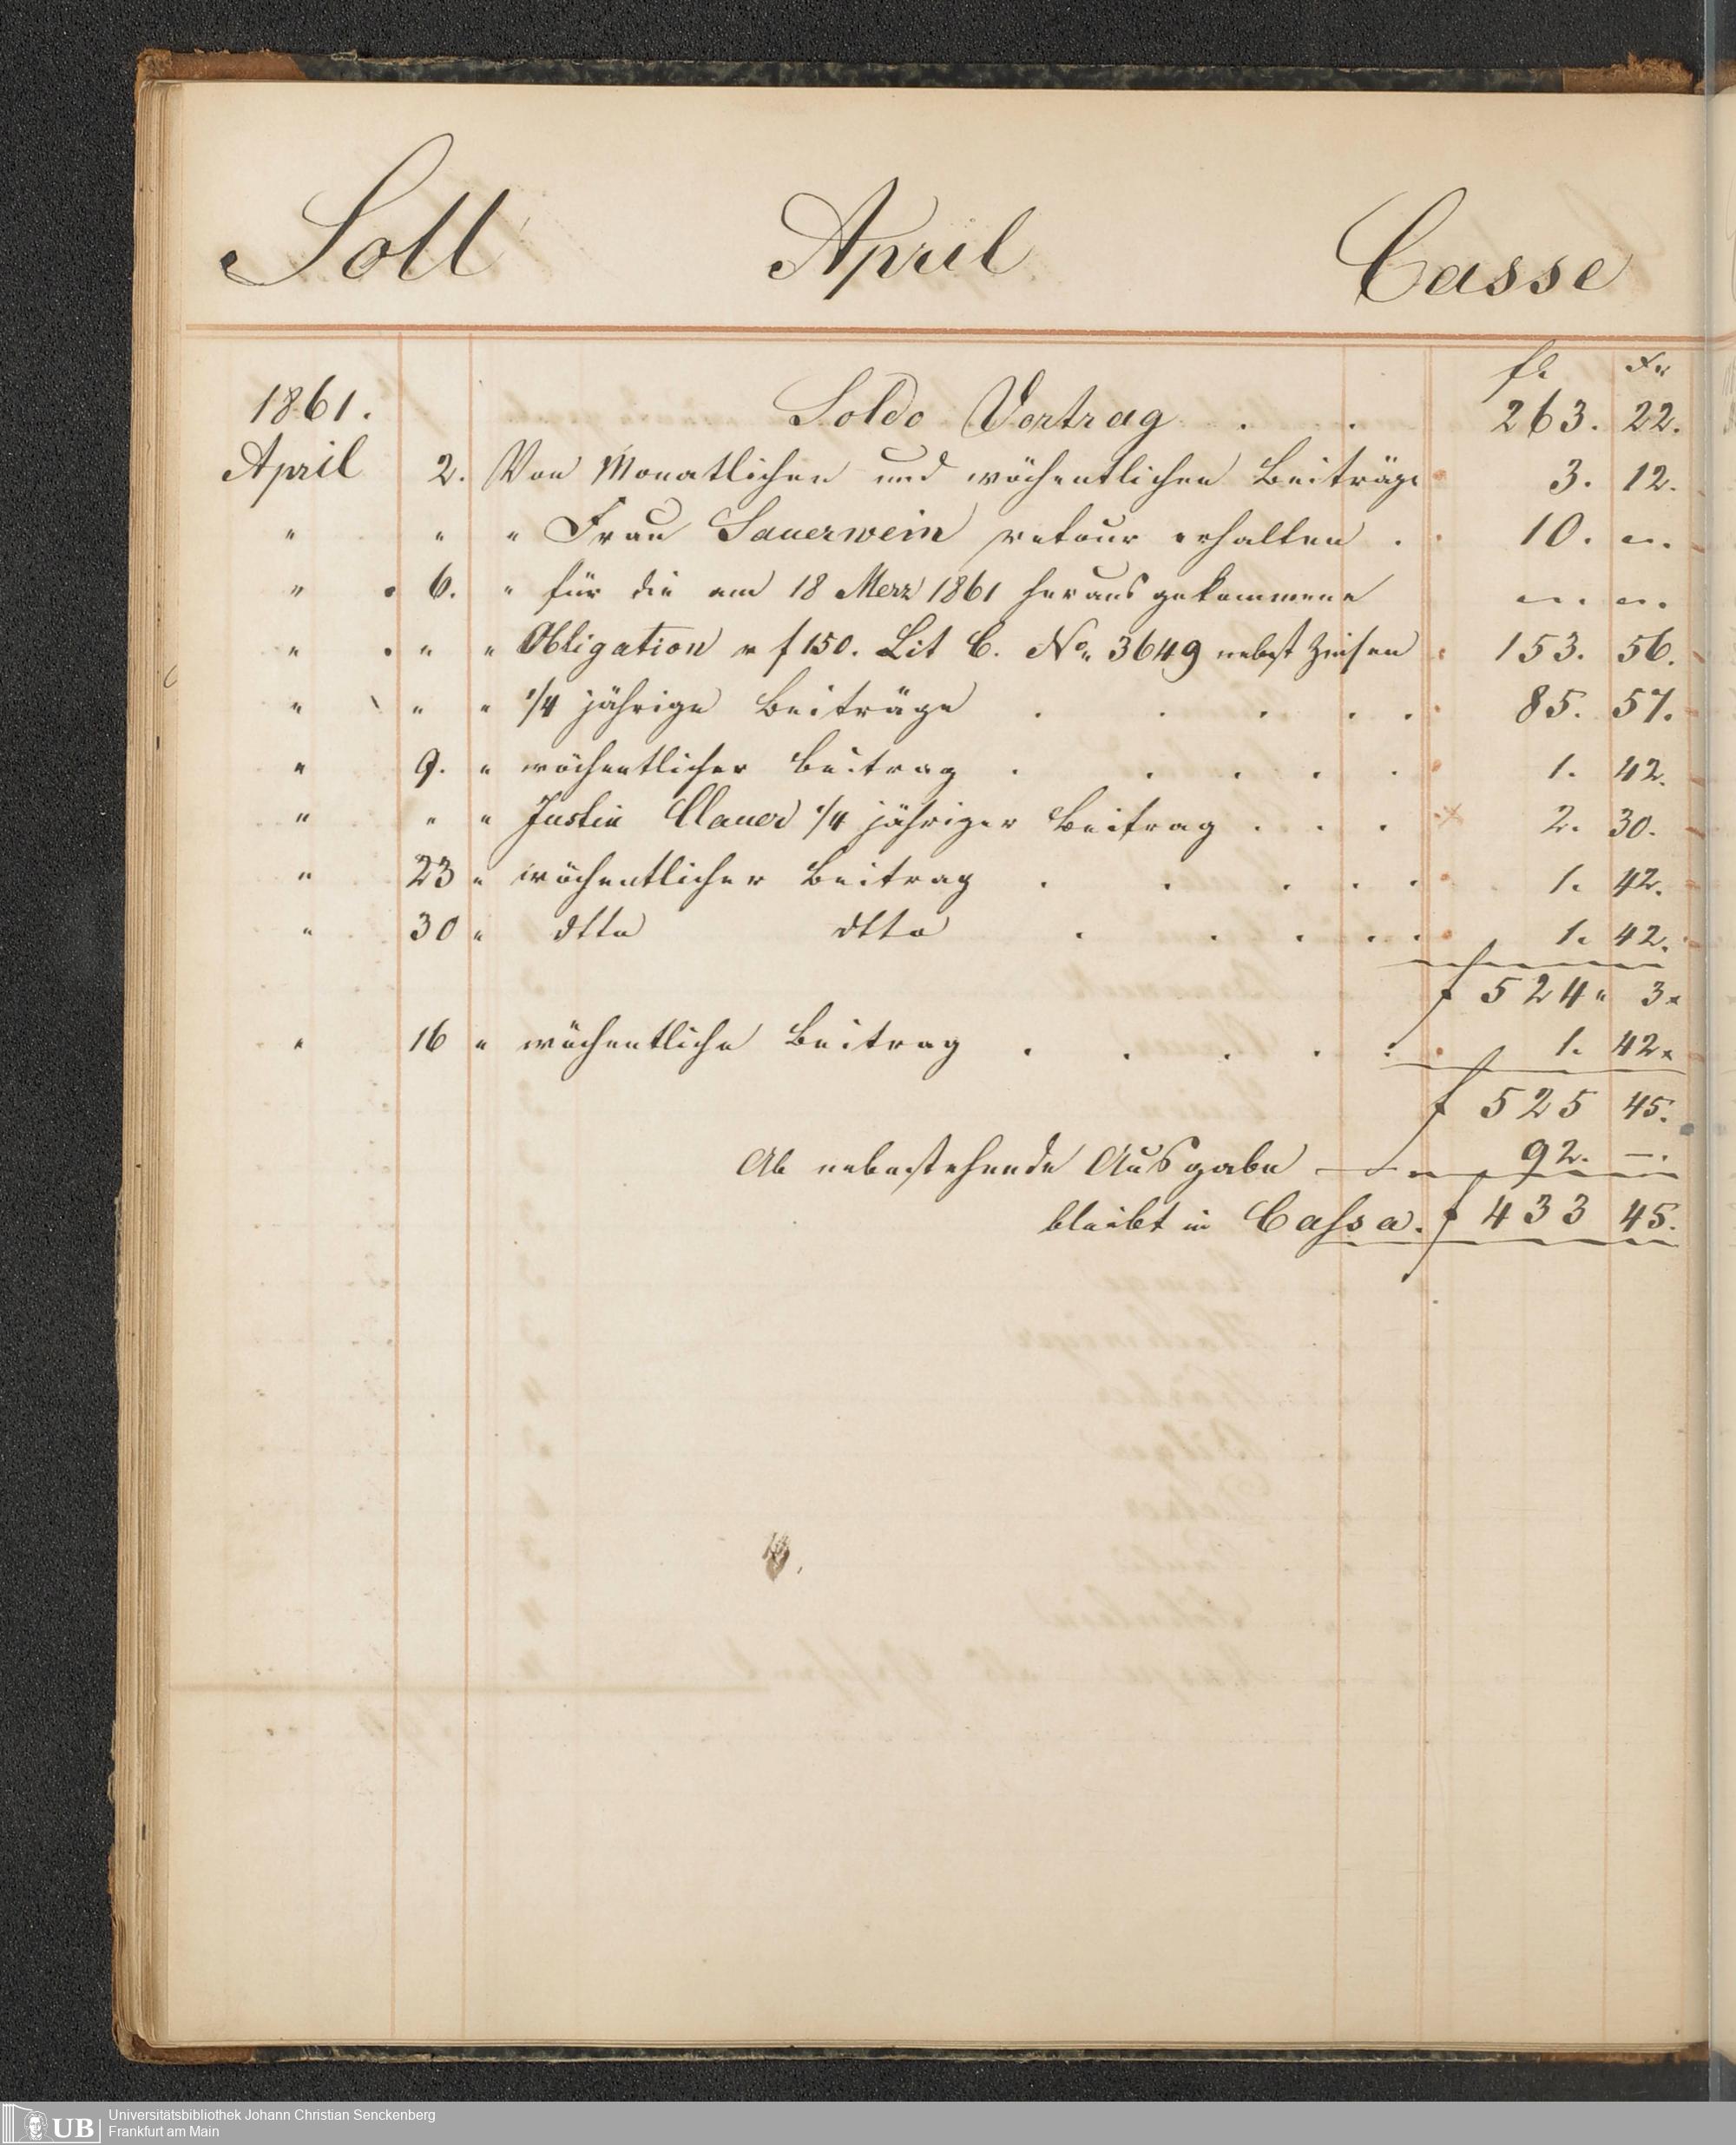 Soll April Casse
fl. Xr
1861. Soldo Vortrag . . 263. 22.
April 2. Von Monatlichen und wöchentlichen Beiträge 3. 12.
" " " Frau Sauerwein retour erhalten . 10. ".
" 6. " für die am 18 Merz 1861 herausgekommene ". ".
" " " Obligation v f 150. Lit C. No 3649 nebst Zinsen 153. 56.
" " " 1/4 jährige Beiträge . . . . . 85. 57.
" 9. " wöchentlicher Beitrag . . . . . 1. 42.
" " " Justin 1/4 jähriger Beitrag . . . 2. 30.
" 23 " wöchentlicher Beitrag . . . . . 1. 42.
" 30 " dtto dtto . . . . . 1. 42.
f 524 " 3 x
" 16 " wöchentliche Beitrag . . . . . 1. 42 x
f 525 45.
Ab nebenstehende Ausgabe 92. —.
bleibt in Cassa. f 433 45.
UB Universitätsbibliothek Johann Christian Senckenberg
Frankfurt am Main